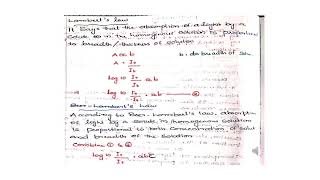 Lambert's law
It Says that the absorption of a light by a
solute in the homogenous solution is proportional
to breadth/thickness of solution
A α b
b = breadth of soln
A = Io
It
log 10 Io . α b
It
→ log 10 Io . α b — ②
It
Beer-Lambert's Law
According to Beer-Lambert's law, absorption
of light by a solute in homogenous solution
is proportional to both concentration of solute
and breadth of the solution
Combine ① & ②
log 10 Io . α b C
It